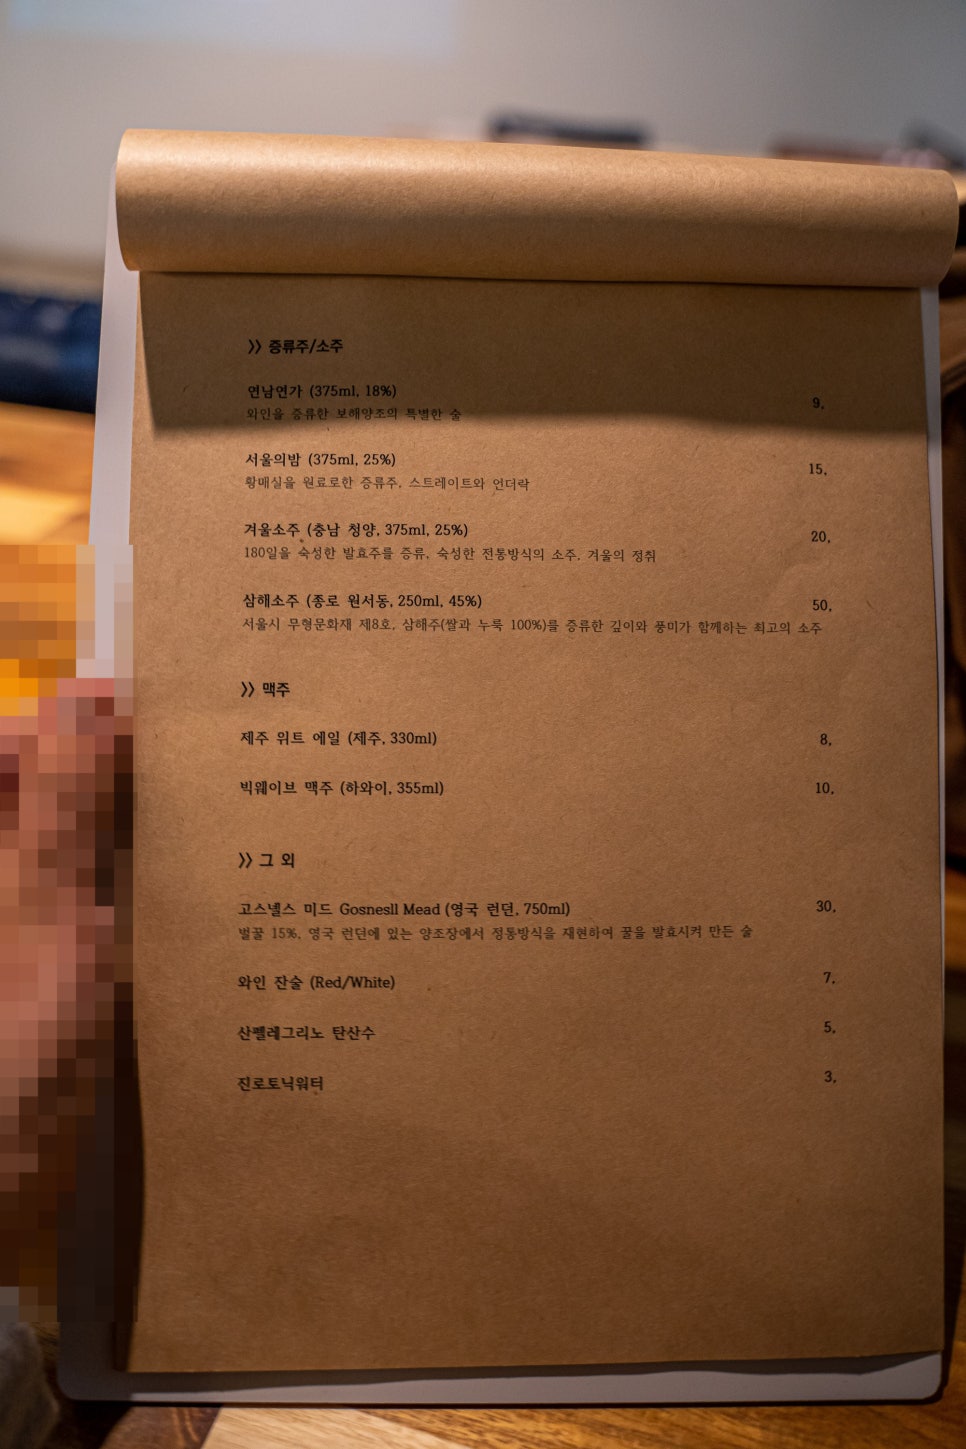 >> 증류주/소주
연남연가 (375ml, 18%)
9,
와인을 증류한 보해양조의 특별한 술
서울의밤 (375ml, 25%)
15,
황매실을 원료로한 증류주, 스트레이트와 언더락
겨울소주 (충남 청양, 375ml, 25%)
20,
180일을 숙성한 발효주를 증류, 숙성한 전통방식의 소주, 겨울의 정취
삼해소주 (종로 원서동, 250ml, 45%)
50,
서울시 무형문화재 제8호, 삼해주(쌀과 누룩 100%)를 증류한 깊이와 풍미가 함께하는 최고의 소주
>> 맥주
제주 위트 에일 (제주, 330ml)
8,
빅웨이브 맥주 (하와이, 355ml)
10,
>> 그 외
고스넬스 미드 Gosnesll Mead (영국 런던, 750ml)
30,
벌꿀 15%, 영국 런던에 있는 양조장에서 정통방식을 재현하여 꿀을 발효시켜 만든 술
와인 잔술 (Red/White)
7,
산펠레그리노 탄산수
5,
진로토닉워터
3,